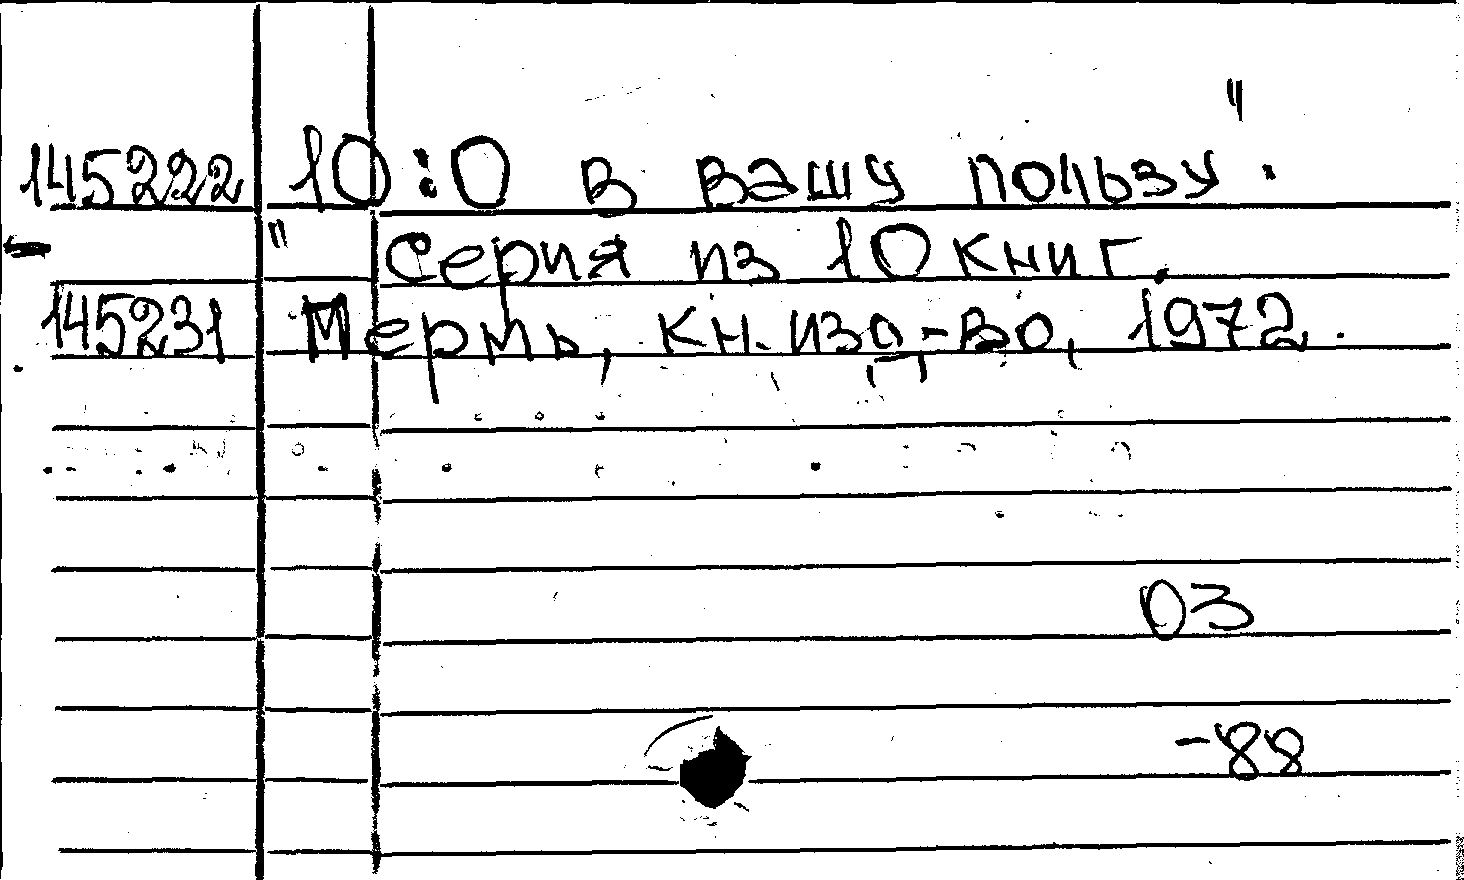 "
145222 10:0 в вашу пользу.
- " Серия из 10 книг.
145231 Пермь, кн. изд-во, 1972.
03
-88